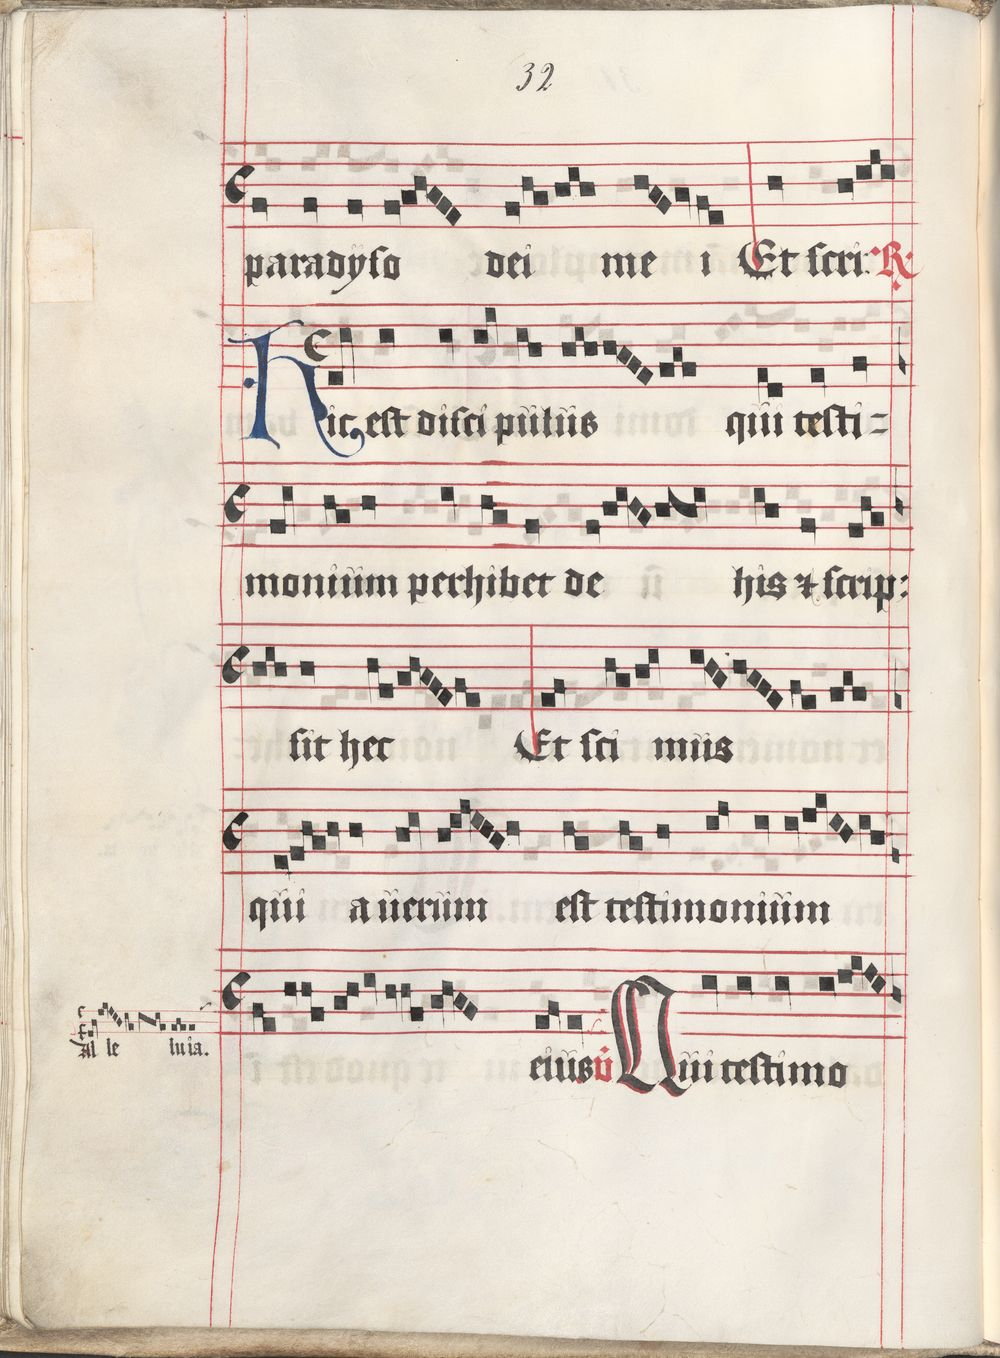 32
paradyso dei me i Et scri: R
Hic est disci pulus qui testi=
monium perhibet de his & scrip:
sit hec Et sci mus
qui a uerum est testimonium
Al le luia.
eius v Qui testimo